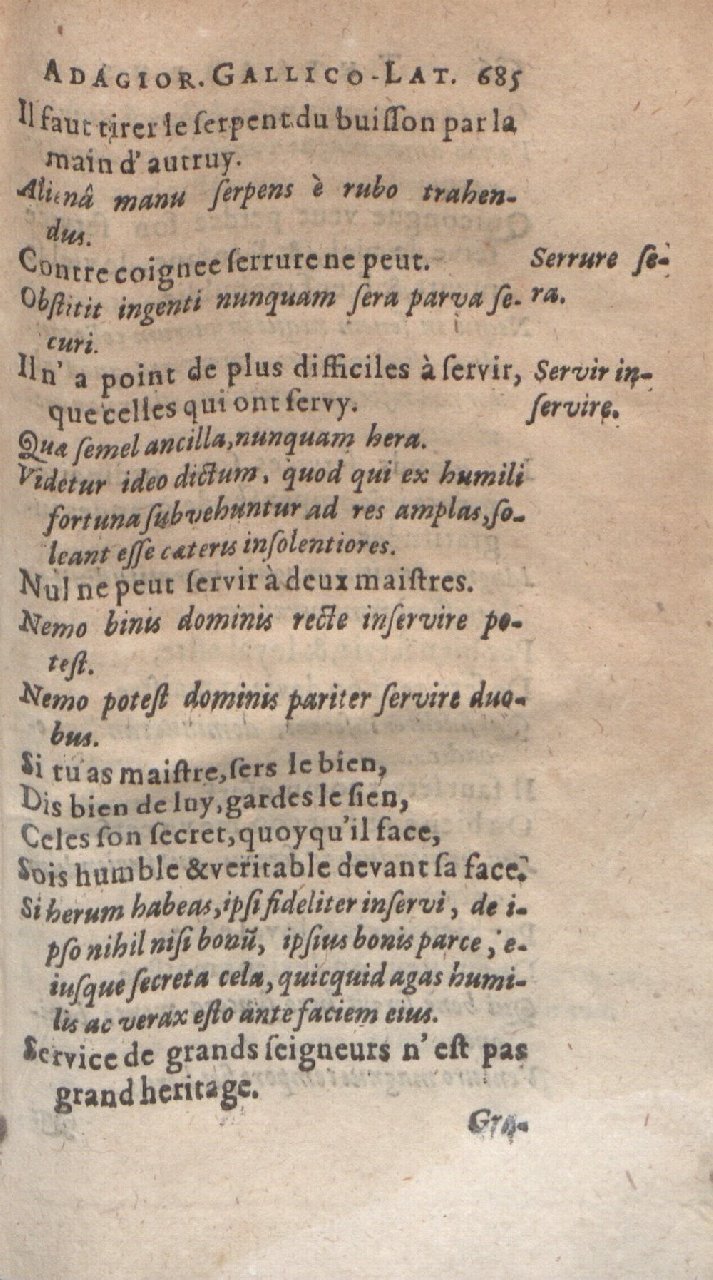 ADAGIOR. GALLICO-LAT. 685
Il faut tirer le ſerpent du buiſſon par la
main d'autruy.
Alienâ manu ſerpens è rubo trahen-
dus.
Contre coignee ſerrure ne peut.
Serrure ſe-
Obſtitit ingenti nunquam ſera parva ſe-
ra.
curi.
Il n'a point de plus difficiles à ſervir,
Servir in-
que celles qui ont ſervy.
ſervire.
Quæ ſemel ancilla, nunquam hera.
Videtur ideo dictum, quod qui ex humili
fortuna ſubvehuntur ad res amplas, ſo-
leant eſſe cæteris inſolentiores.
Nul ne peut ſervir à deux maiſtres.
Nemo binis dominis recte inſervire po-
teſt.
Nemo poteſt dominis pariter ſervire duo-
bus.
Si tu as maiſtre, ſers le bien,
Dis bien de luy, gardes le ſien,
Celes ſon ſecret, quoy qu'il face,
Sois humble & veritable devant ſa face.
Si herum habeas, ipſi fideliter inſervi, de i-
pſo nihil niſi bonũ, ipſius bonis parce, e-
iuſque ſecreta cela, quicquid agas humi-
lis ac verax eſto ante faciem eius.
Service de grands ſeigneurs n'eſt pas
grand heritage.
Gra-